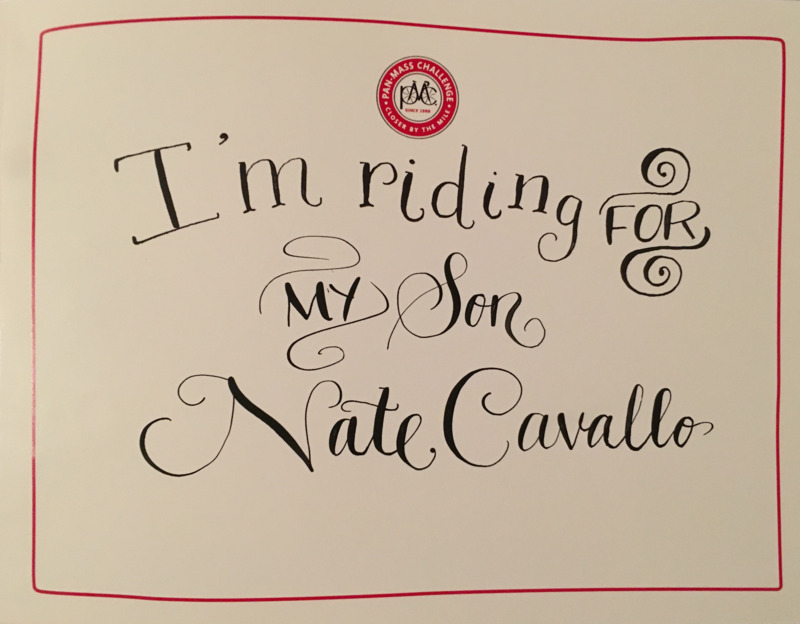 PAN-MASS CHALLENGE
PMC
SINCE 1980
CLOSER BY THE MILE
I'm riding FOR
MY Son
Nate Cavallo